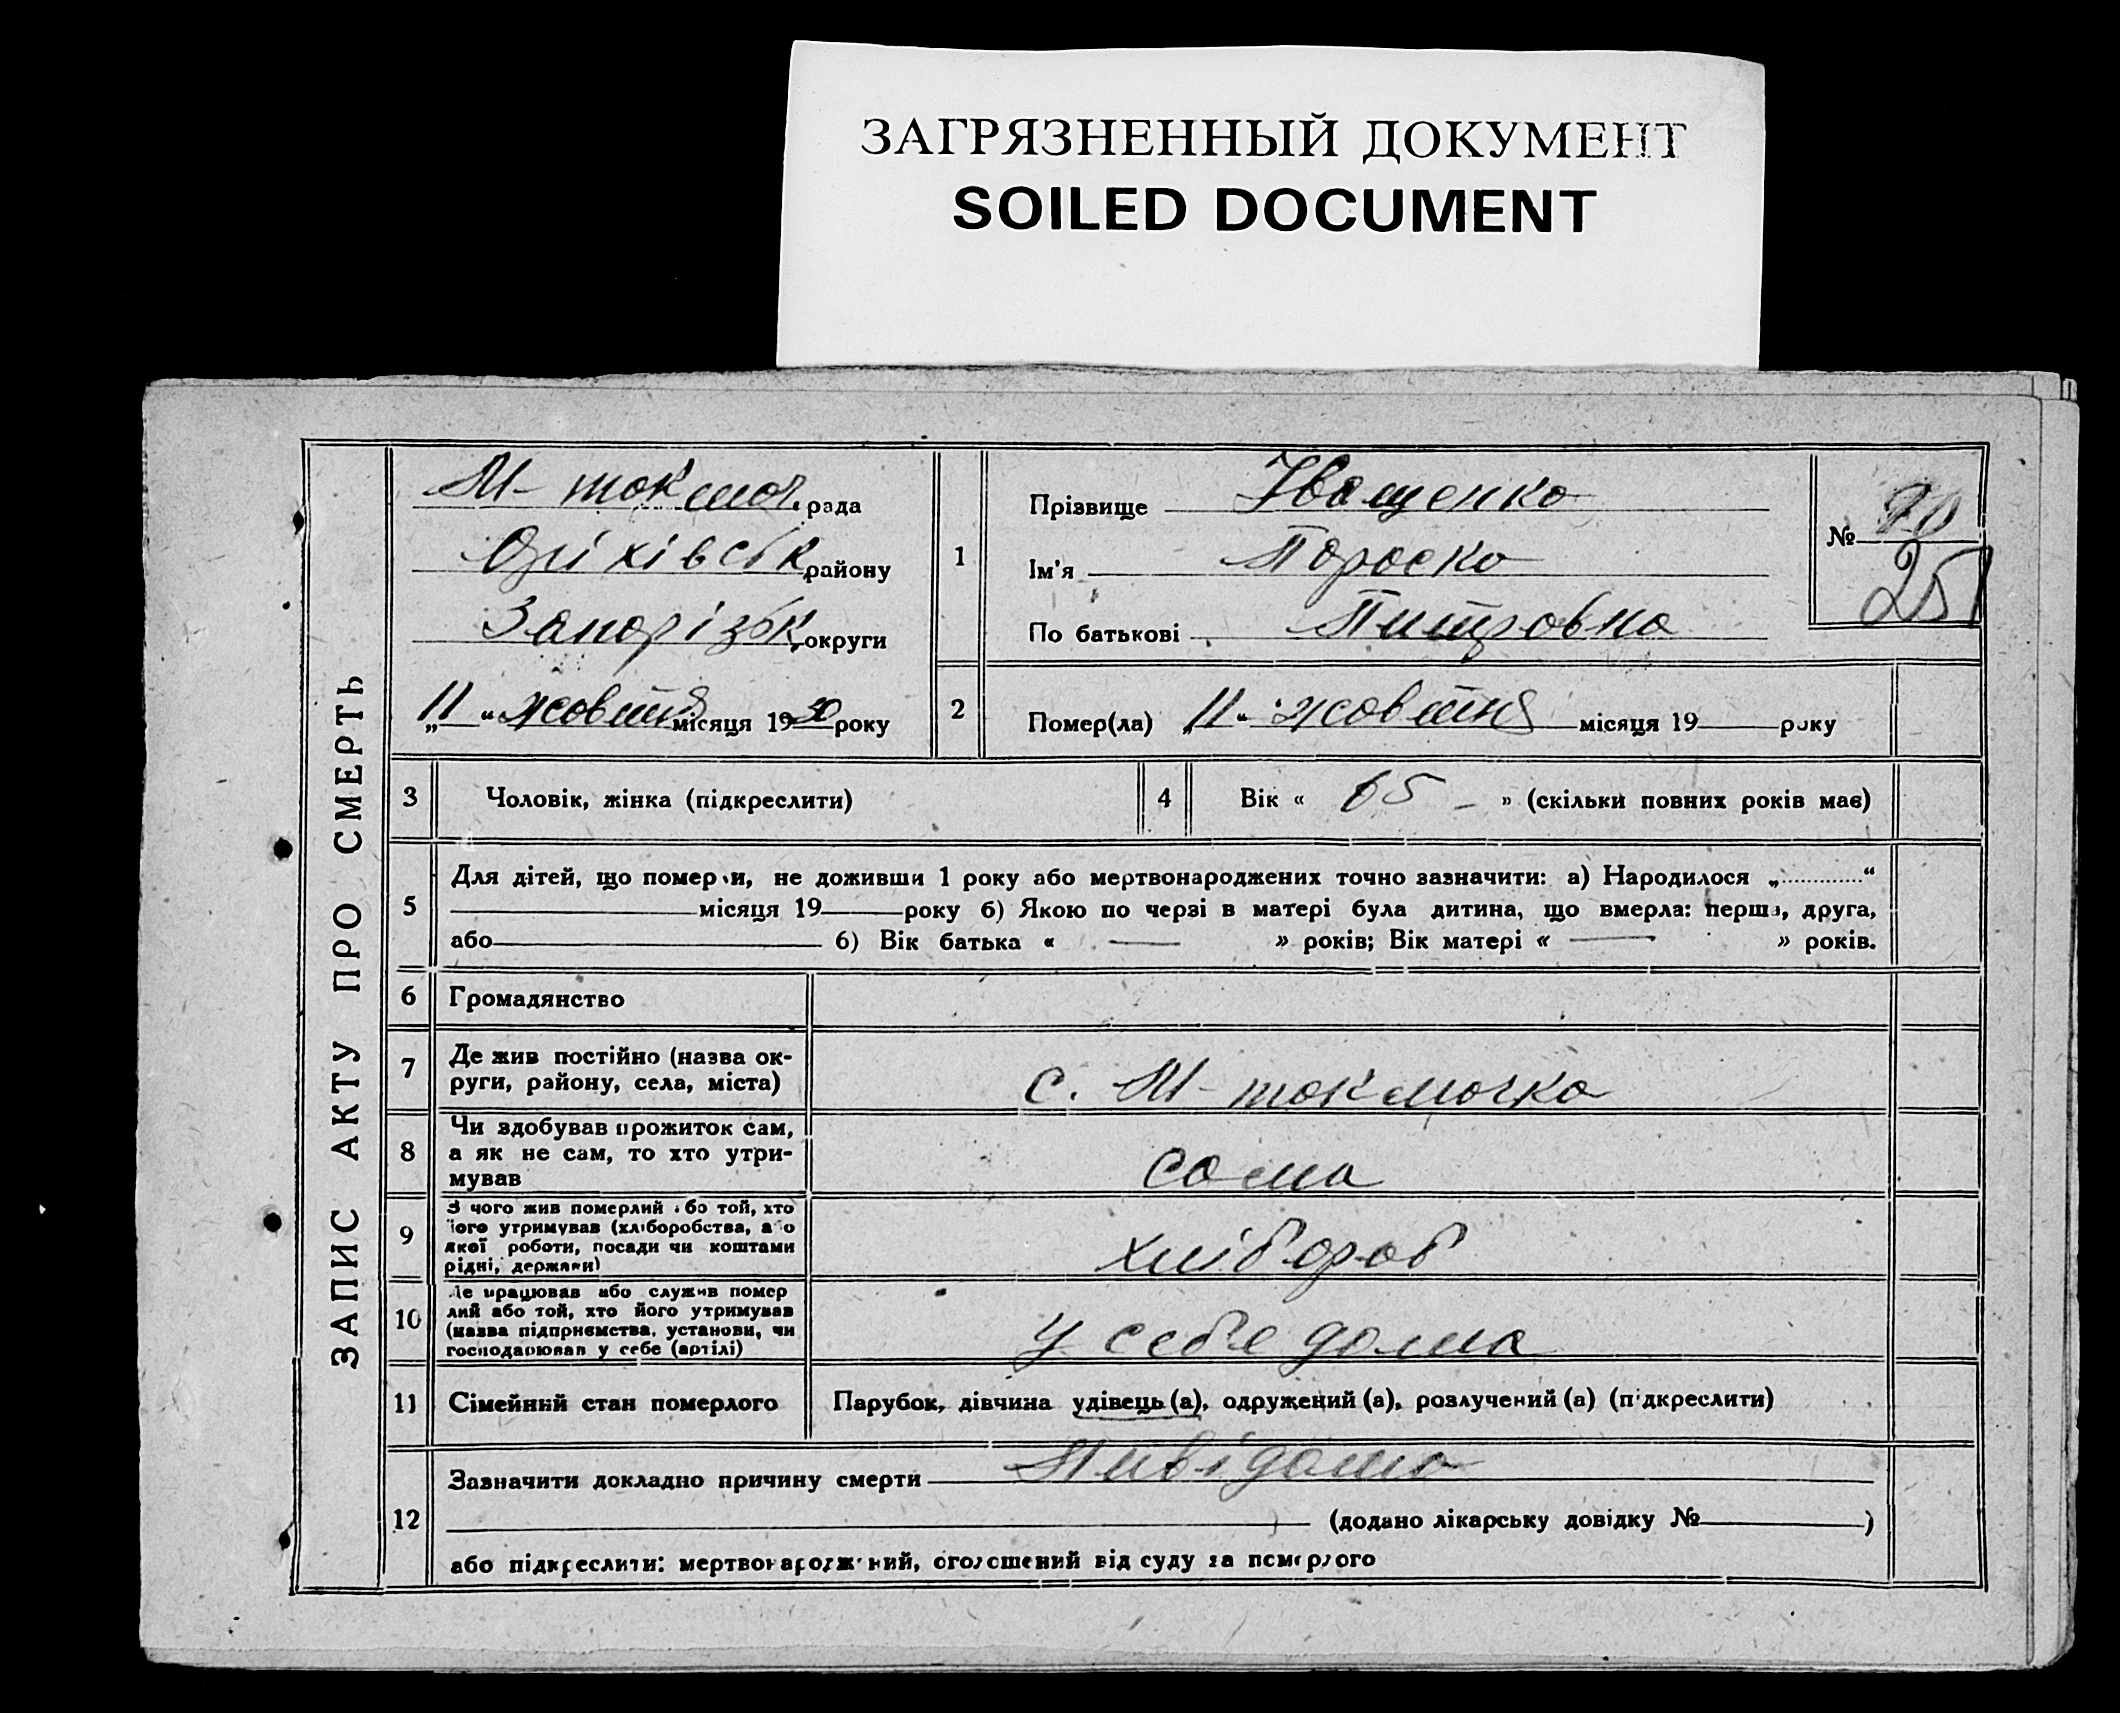 ЗАГРЯЗНЕННЫЙ ДОКУМЕНТ
SOILED DOCUMENT
ЗАПИС АКТУ ПРО СМЕРТЬ
М-токмоч. рада
Оріхівськ. району
Запорізьк. округи
„11“ жовтня місяця 1930 року
1
Прізвище Іващенко
Ім'я Пороско
По батькові Питровна
№ 90
25
2
Помер(ла) „11“ жовтня місяця 19 року
3 Чоловік, жінка (підкреслити)
4 Вік « 65 - » (скільки повних років має)
5
Для дітей, що померли, не доживши 1 року або мертвонароджених точно зазначити: а) Народилося „ “
місяця 19 року б) Якою по черзі в матері була дитина, що вмерла: перша, друга,
або б) Вік батька « — » років; Вік матері « — » років.
6 Громадянство
7
Де жив постійно (назва ок-
руги, району, села, міста)
с. М-токмочка
8
Чи здобував прожиток сам,
а як не сам, то хто утри-
мував
сама
9
З чого жив померлий або той, хто
його утримував (хліборобства, або
якої роботи, посади чи коштами
рідні, держави)
хлібороб
10
Де працював або служив помер
лий або той, хто його утримував
(назва підприємства, установи, чи
господарював у себе (артілі)
у себе дома
11 Сімейний стан померлого
Парубок, дівчина удівець (а), одружений (а), розлучений (а) (підкреслити)
12
Зазначити докладно причину смерти Нивідомо
(додано лікарську довідку № )
або підкреслити: мертвонароджений, оголошений від суду за померлого